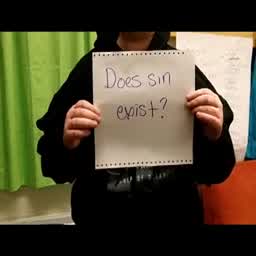 Does sin
exist?